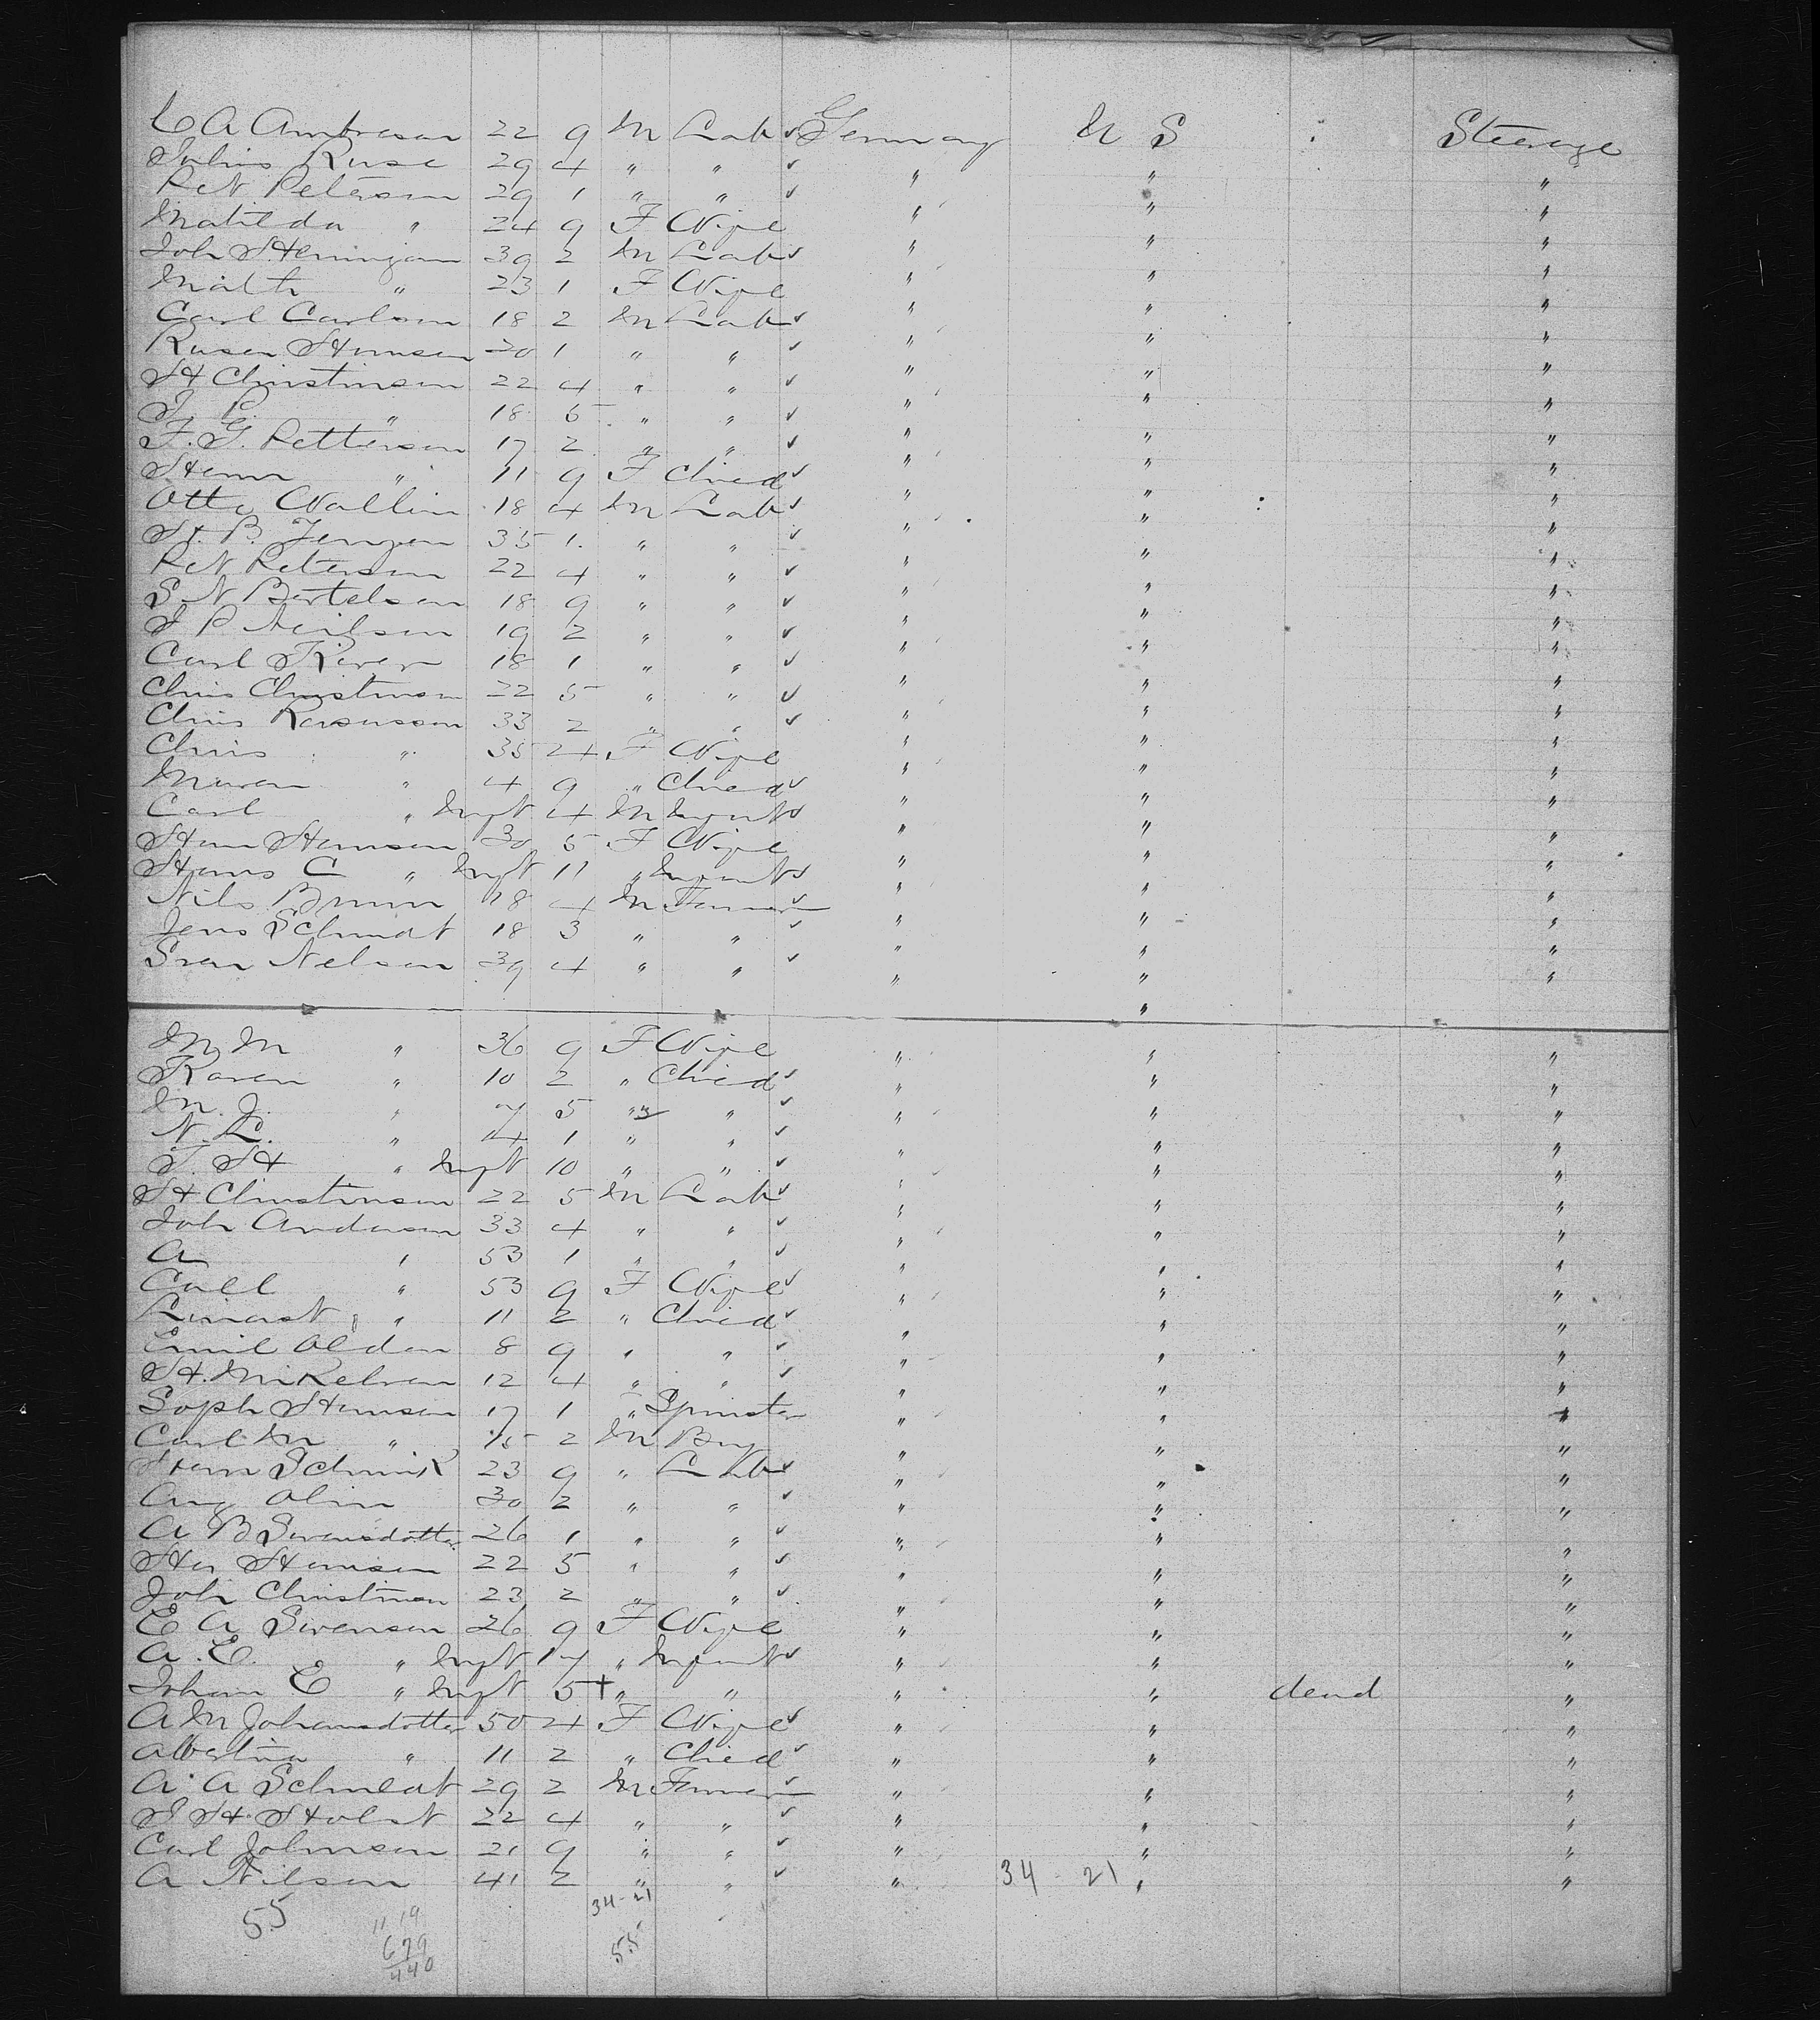 C A Ambrosen 22 9 M Lab ✓ Germany U S Steerage
Julius Ruse 29 4 " " ✓ " " "
P N Peterson 29 1 " " ✓ " " "
Matilda " 24 9 F Wife " " "
Joh Henningsen 39 2 M Lab ✓ " " "
" 23 1 F Wife " " "
Carl Carlson 18 2 M Lab ✓ " " "
Hansen 20 1 " " ✓ " " "
H Christinsen 22 4 " " ✓ " " "
J. P. " 18 5 " " ✓ " " "
F. G. Petterson 17 2 " " ✓ " " "
" 11 9 F Child ✓ " " "
Otto Wallin 18 4 M Lab ✓ " " "
H. B. Jensen 35 1 " " ✓ " " "
P N Peterson 22 4 " " ✓ " " "
S N Bertelsen 18 9 " " ✓ " " "
J P Neilson 19 2 " " ✓ " " "
Carl 18 1 " " ✓ " " "
Chris Christinson 22 5 " " ✓ " " "
Chris Rassusson 33 2 " " ✓ " " "
Chris " 35 4 F Wife " " "
Maren " 4 9 " Child ✓ " " "
Carl " Inft 4 M Infant ✓ " " "
Han Hansen 30 5 F Wife " " "
Hans C " Inft 11 " Infant ✓ " " "
Nils Brunn 18 4 M Farmer ✓ " " "
Jens Schmidt 18 3 " " ✓ " " "
Sven Nelson 39 4 " " ✓ " " "
M M " 36 9 F Wife " " "
Karen " 10 2 " Child ✓ " " "
M. J. " 7 5 " " ✓ " " "
N. L. " 4 1 " " ✓ " " "
T. H " Inft 10 " " ✓ " " "
H Christinsen 22 5 M Lab ✓ " " "
Joh Anderson 33 4 " " ✓ " " "
A " 53 1 " " ✓ " " "
" 53 9 F Wife ✓ " " "
" 11 2 " Child ✓ " " "
Emil Olden 8 9 " " ✓ " " "
H. Mikelsen 12 4 " " ✓ " " "
Soph Hansen 17 1 " Spinster " " "
Carl M " 15 2 M Boy " " "
Schmik 23 9 " Lab ✓ " " "
Aug Olin 30 2 " " ✓ " " "
A B Swensdotter 26 1 " " ✓ " " "
Hansen 22 5 " " ✓ " " "
Joh Christinson 23 2 " " ✓ " " "
E A Swenson 26 9 F Wife " " "
A. E. " Inft 17 " Infant ✓ " " "
Johan E " Inft 5 † " " " " dead "
A M Johansdotter 50 4 F Wife ✓ " " "
Albertina " 11 2 " Child ✓ " " "
A. A Schmidt 29 2 M Farmer ✓ " " "
J H Holst 22 4 " " ✓ " " "
Carl Johnson 21 9 " " ✓ " " "
A Nilson 41 2 " " ✓ " 34 - 21 " "
34-21
55 11 19
679 55
440